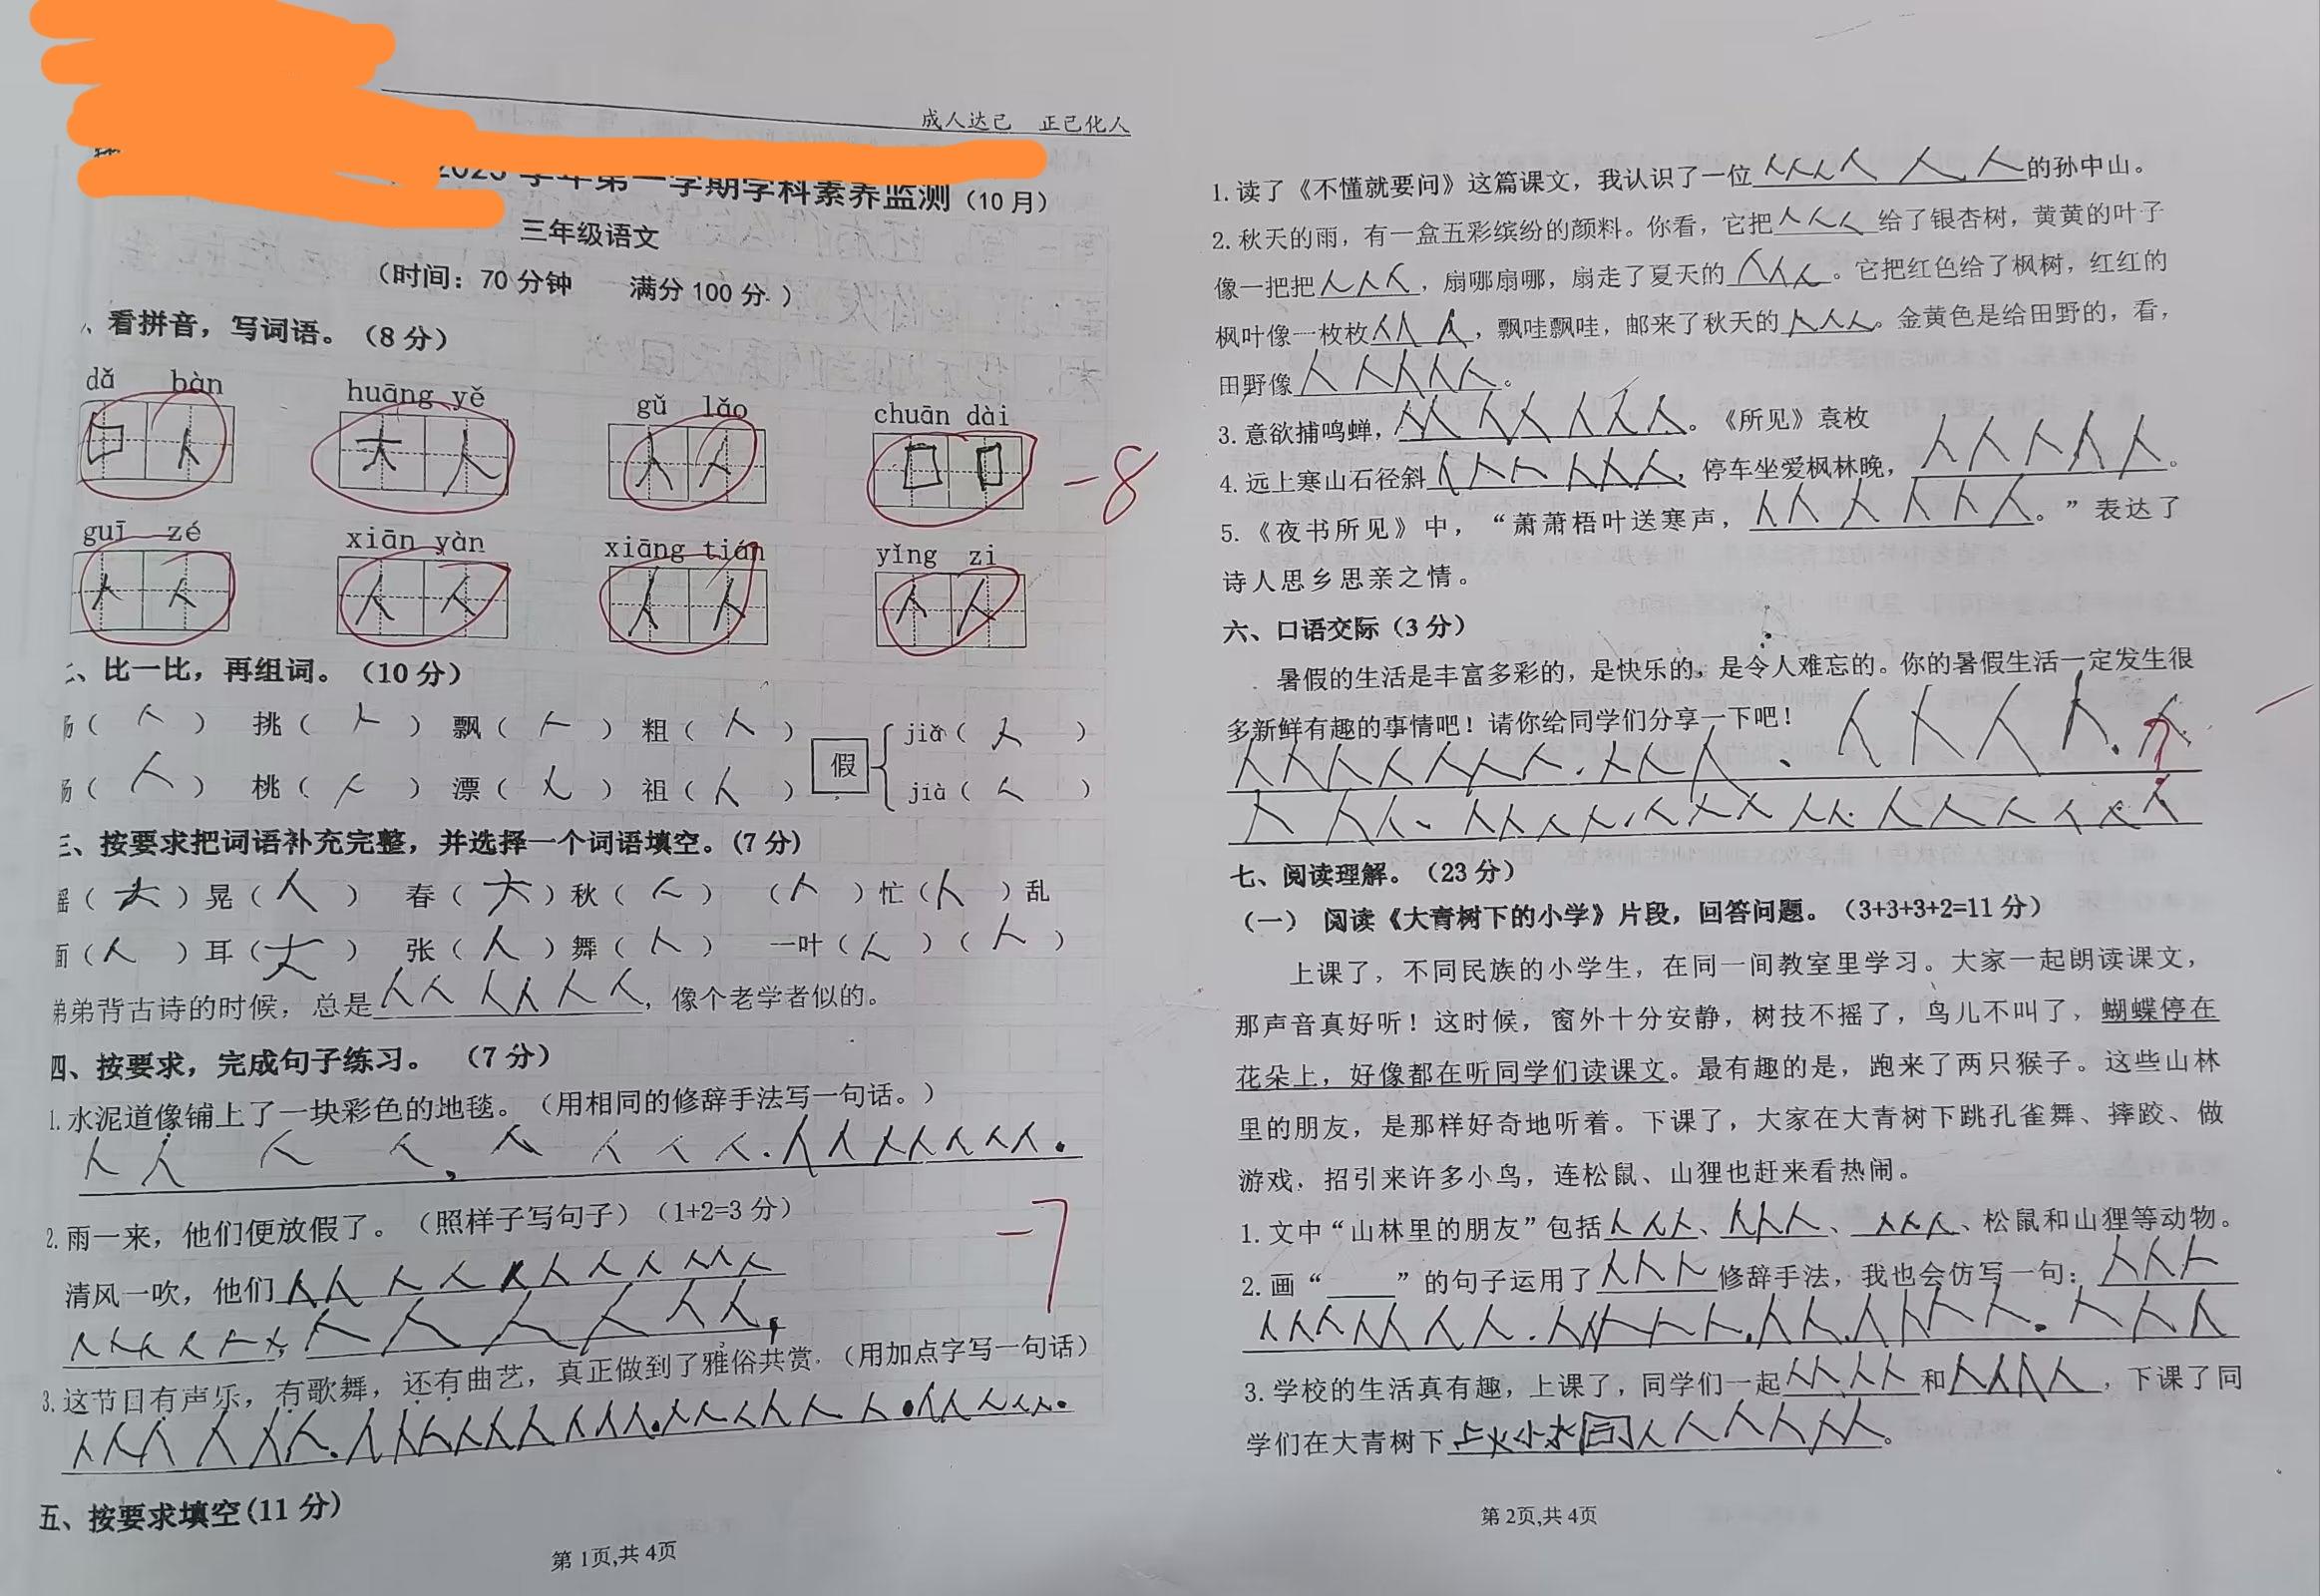 成人达己 正己化人
学年第一学期学科素养监测（10月）
三年级语文
（时间：70分钟 满分100分.）
、看拼音，写词语。（8分）
dǎ bàn huāng yě gǔ lǎo chuān dài
口人 大人 人人 口口
-8
guī zé xiān yàn xiāng tián yǐng zi
人人 人人 人人 人人
、比一比，再组词。（10分）
（人） 挑（人） 飘（人） 粗（人） 假 jiǎ（人）
（人） 桃（人） 漂（人） 祖（人） jià（人）
三、按要求把词语补充完整，并选择一个词语填空。(7分)
摇（大）晃（人） 春（大）秋（人） （人）忙（人）乱
面（人）耳（大） 张（人）舞（人） 一叶（人）（人）
弟弟背古诗的时候，总是人人人人人人，像个老学者似的。
四、按要求，完成句子练习。（7分）
1.水泥道像铺上了一块彩色的地毯。（用相同的修辞手法写一句话。）
2.雨一来，他们便放假了。（照样子写句子）（1+2=3分）
-7
清风一吹，他们
3.这节目有声乐，有歌舞，还有曲艺，真正做到了雅俗共赏.（用加点字写一句话）
五、按要求填空(11分)
第1页,共4页
1.读了《不懂就要问》这篇课文，我认识了一位人人人人人人的孙中山。
2.秋天的雨，有一盒五彩缤纷的颜料。你看，它把人人人给了银杏树，黄黄的叶子
像一把把人人人，扇哪扇哪，扇走了夏天的人人人。它把红色给了枫树，红红的
枫叶像一枚枚人人人，飘哇飘哇，邮来了秋天的人人人。金黄色是给田野的，看，
田野像人人人人人。
3.意欲捕鸣蝉，人人人人人人人。《所见》袁枚
4.远上寒山石径斜人人人人人人，停车坐爱枫林晚，人人人人人。
5.《夜书所见》中，“萧萧梧叶送寒声，人人人人人人。”表达了
诗人思乡思亲之情。
六、口语交际（3分）
暑假的生活是丰富多彩的，是快乐的，是令人难忘的。你的暑假生活一定发生很
多新鲜有趣的事情吧！请你给同学们分享一下吧！
七、阅读理解。（23分）
（一） 阅读《大青树下的小学》片段，回答问题。（3+3+3+2=11分）
上课了，不同民族的小学生，在同一间教室里学习。大家一起朗读课文，
那声音真好听！这时候，窗外十分安静，树技不摇了，鸟儿不叫了，蝴蝶停在
花朵上，好像都在听同学们读课文。最有趣的是，跑来了两只猴子。这些山林
里的朋友，是那样好奇地听着。下课了，大家在大青树下跳孔雀舞、摔跤、做
游戏，招引来许多小鸟，连松鼠、山狸也赶来看热闹。
1.文中“山林里的朋友”包括人人人、人人人、人人人、松鼠和山狸等动物。
2.画“____”的句子运用了人人人修辞手法，我也会仿写一句：人人人
3.学校的生活真有趣，上课了，同学们一起人人人人和人人人人，下课了同
学们在大青树下上火小水回人人人人人人。
第2页,共4页